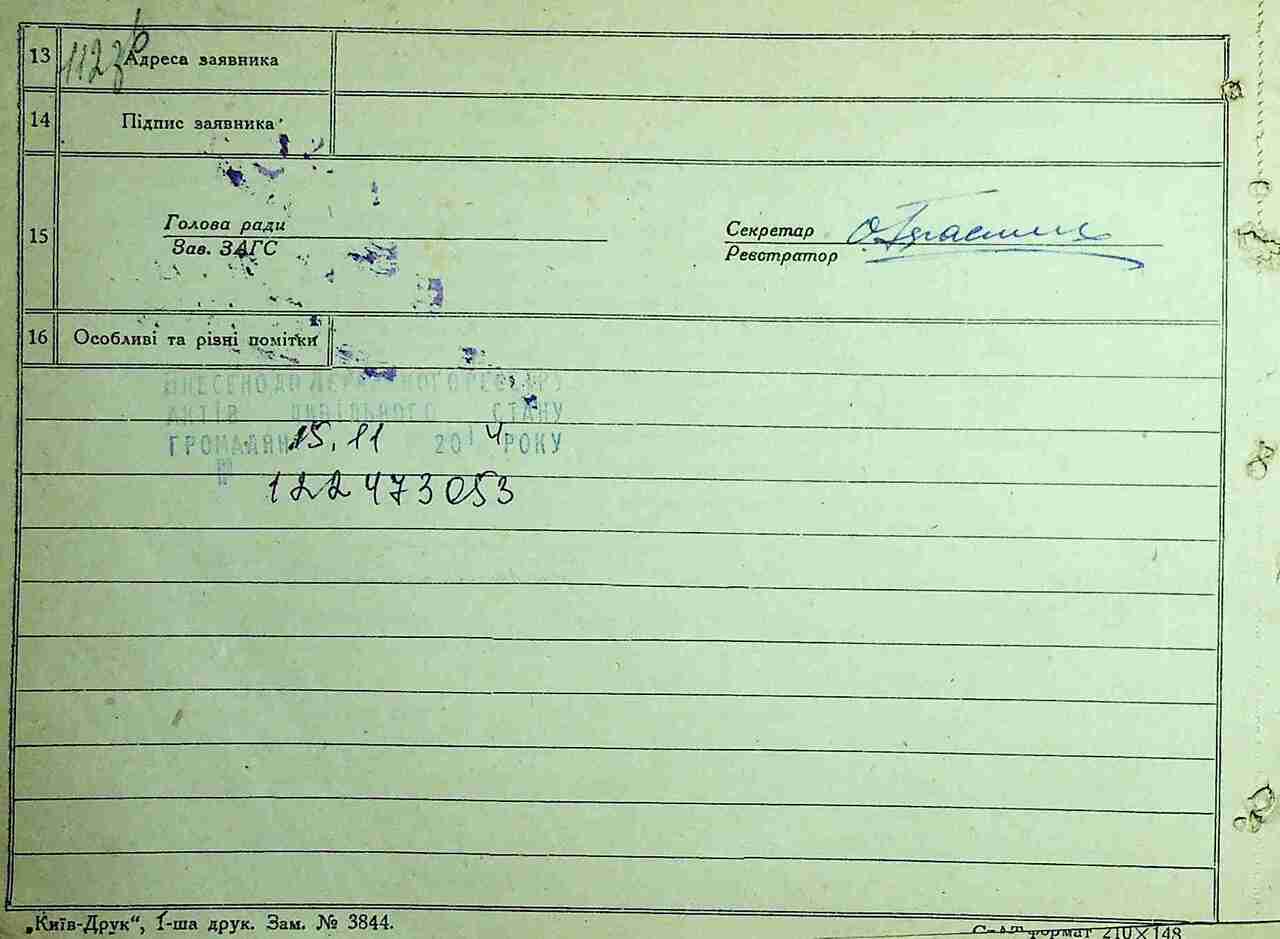 13 Адреса заявника
14 Підпис заявника
15 Голова ради
Зав. ЗАГС
Секретар
Реєстратор
16 Особливі та різні помітки
ВНЕСЕНО ДО ДЕРЖАВНОГО РЕЄСТРУ
АКТІВ ЦИВІЛЬНОГО СТАНУ
ГРОМАДЯН 15.11 2014 РОКУ
№ 122473053
„Київ-Друк“, 1-ша друк. Зам. № 3844.
формат 210×148